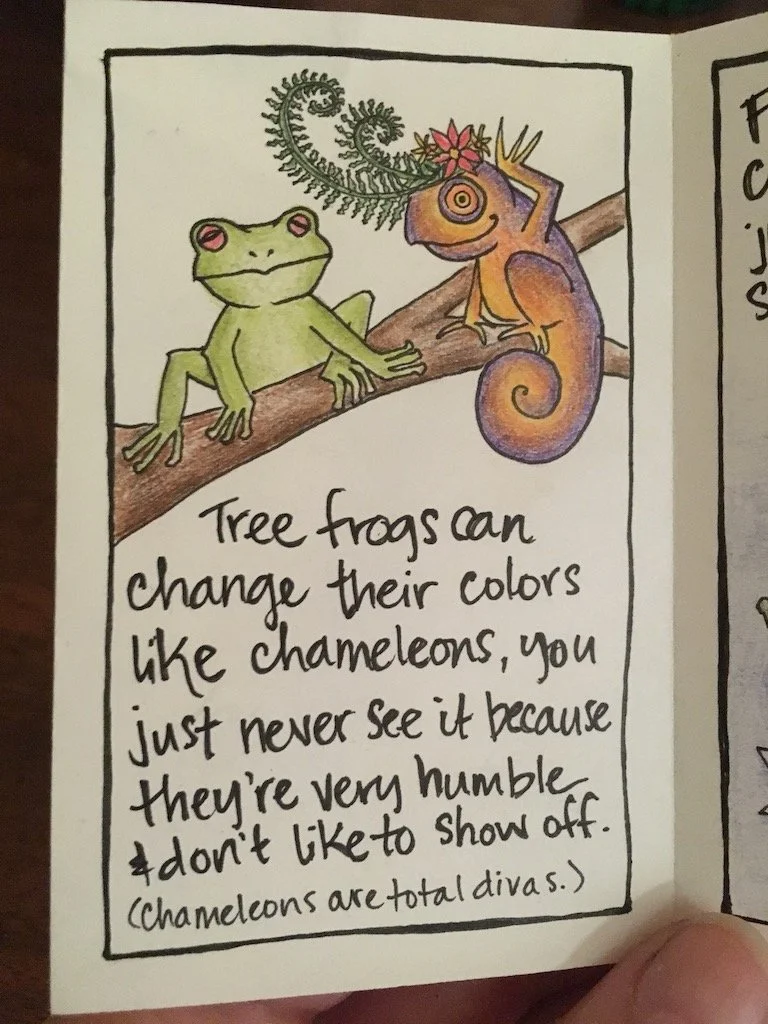 Tree frogs can
change their colors
like chameleons, you
just never see it because
they're very humble
& don't like to show off.
(Chameleons are total divas.)